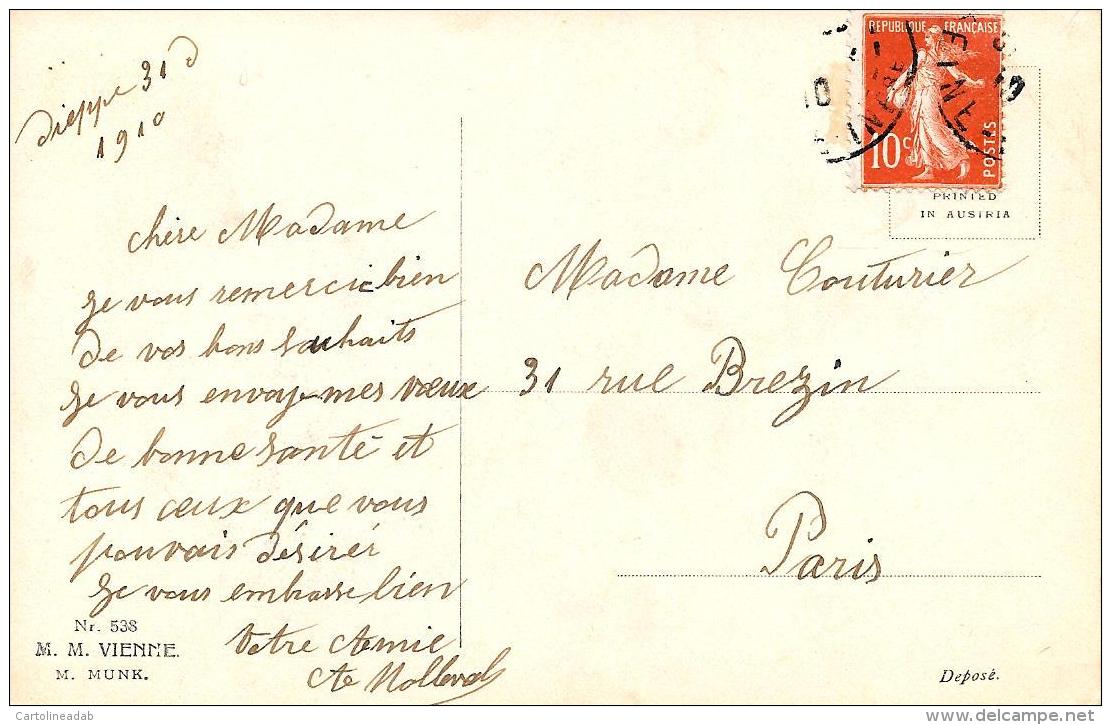 Dieppe 31 d
1910
chère Madame
je vous remercie bien
de vos bons souhaits
je vous envoye mes vœux
de bonne santé et
tous ceux que vous
pouvais désirér
je vous embrasse bien
Votre Amie
REPUBLIQUE FRANÇAISE
10c
POSTES
PRINTED
IN AUSTRIA
Madame Couturier
31 rue Brezin
Paris
Nr. 538
M. M. VIENNE.
M. MUNK.
Deposé.
Cartolineadab
delcampe.net